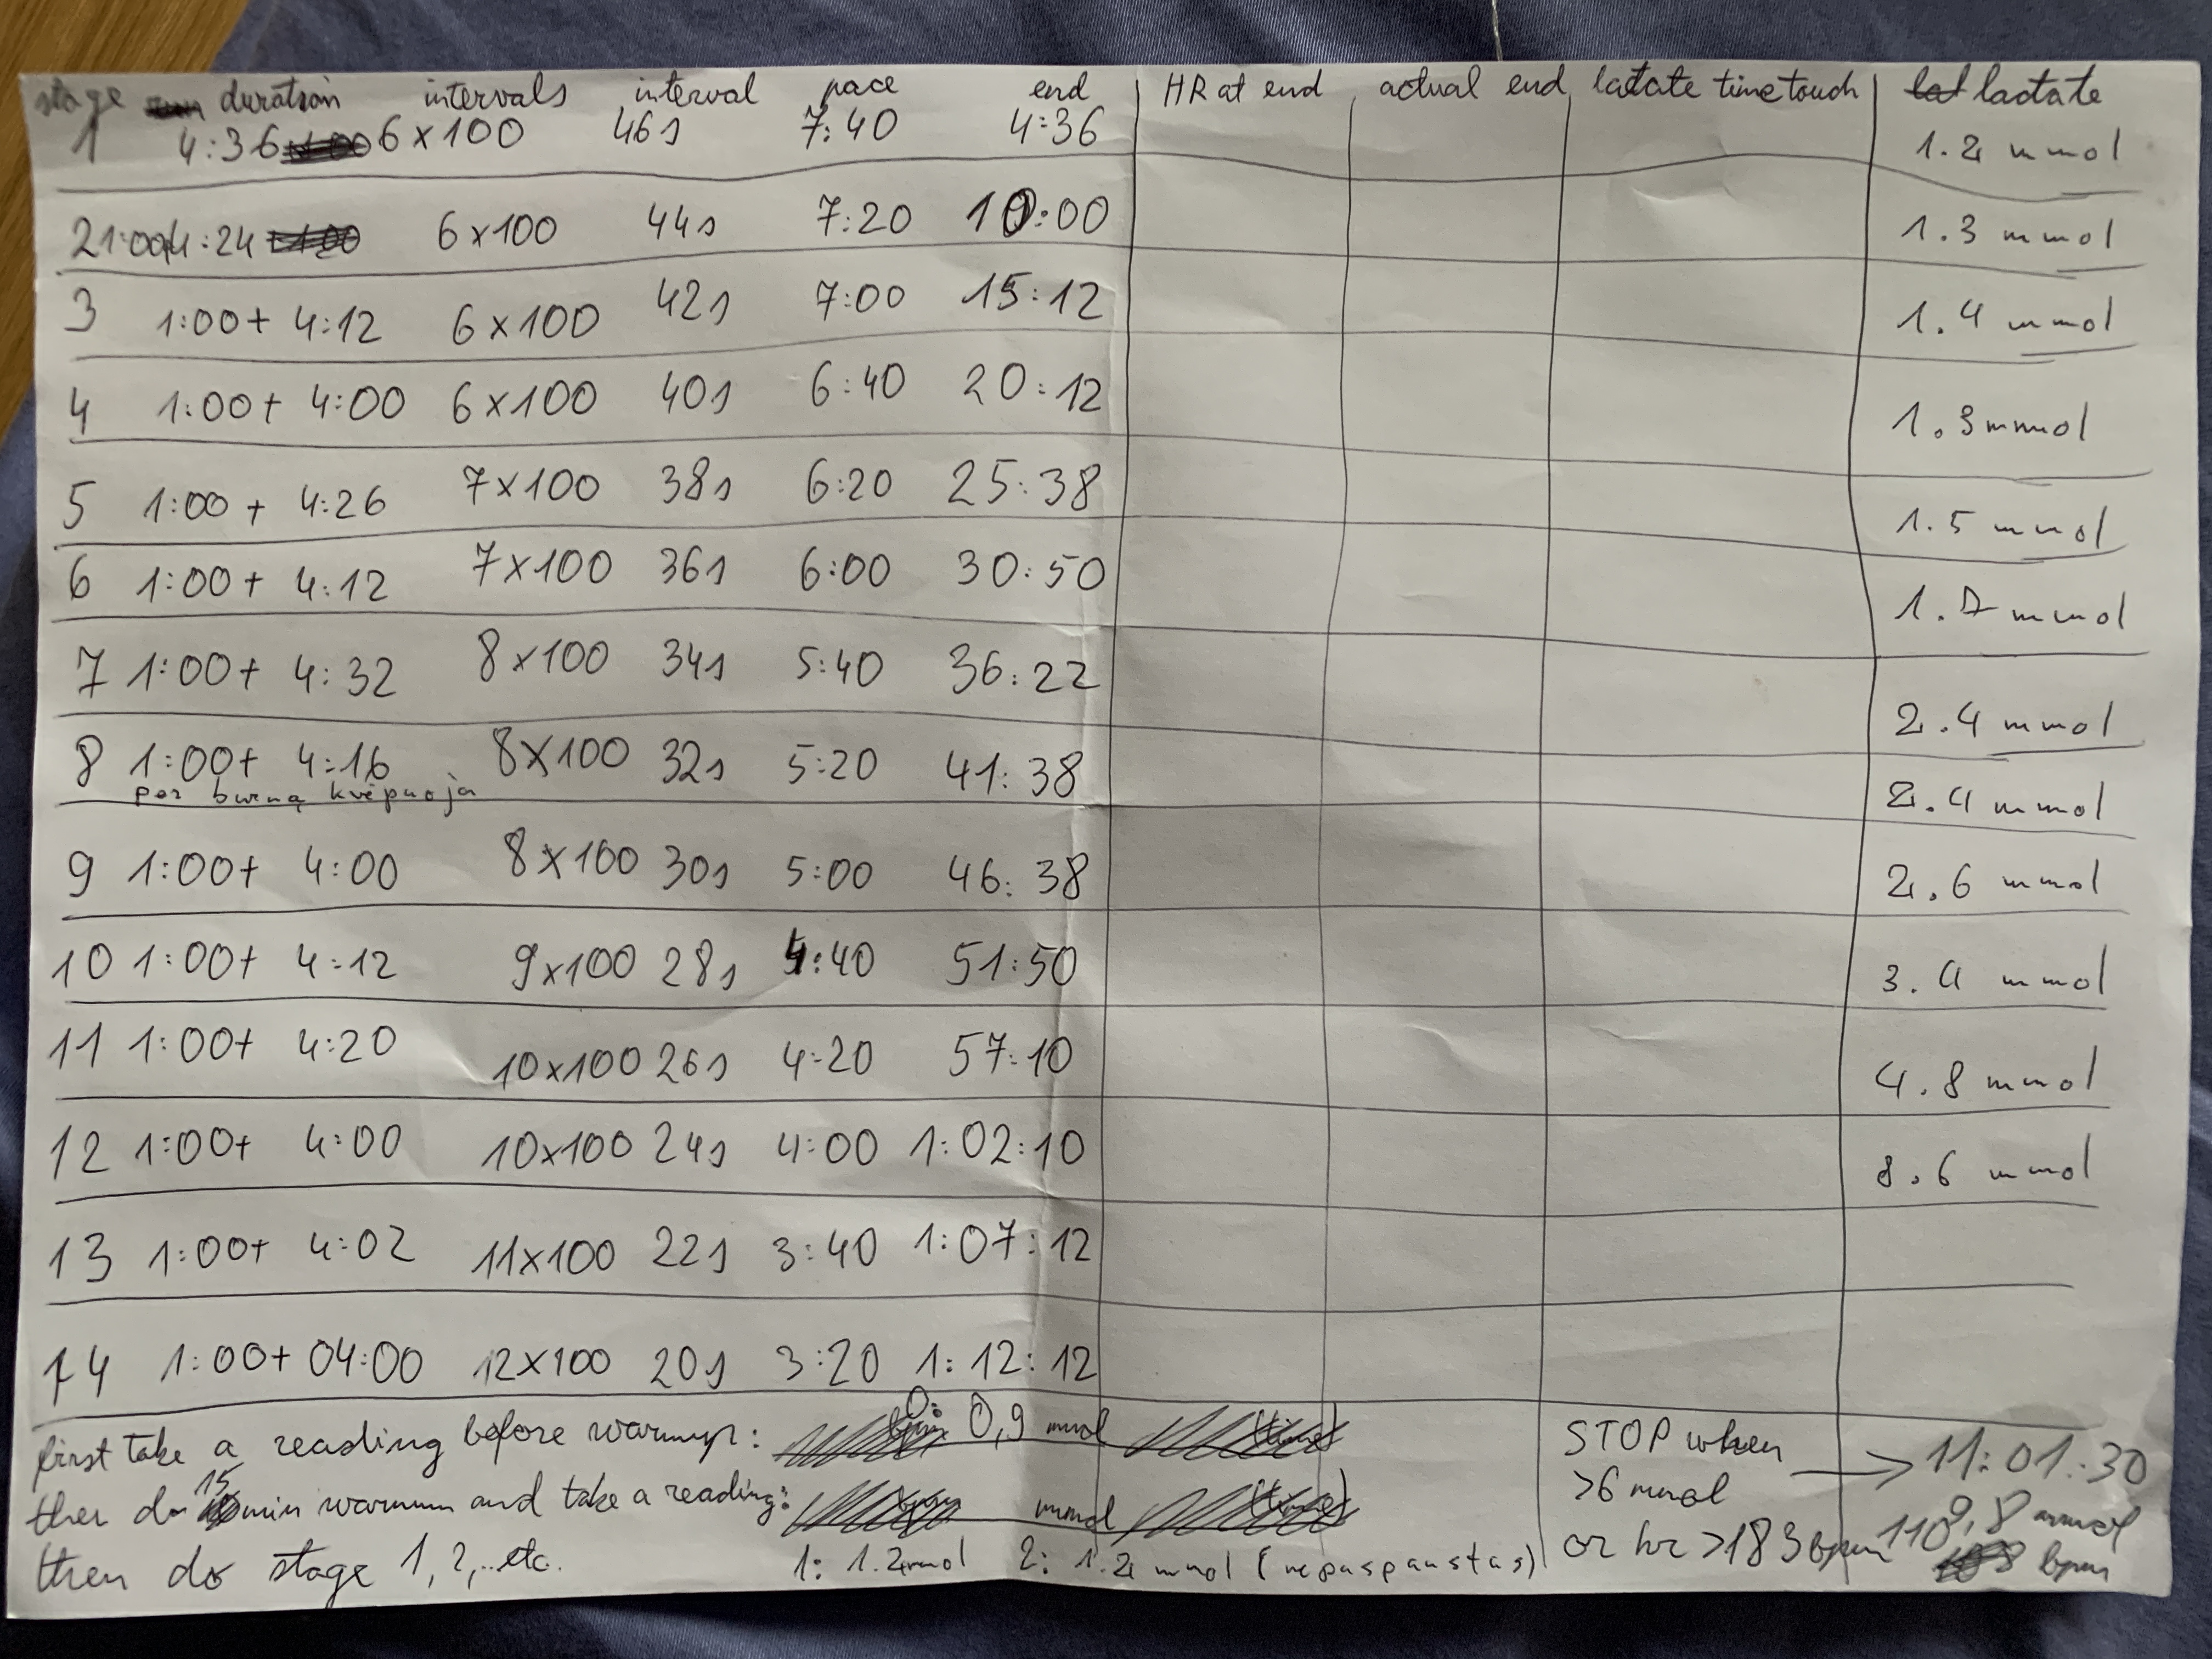 stage duration intervals interval pace end HR at end actual end lactate time touch lactate
1 4:36 6x100 46s 7:40 4:36 1.2 mmol
2 1:00+4:24 6x100 44s 7:20 10:00 1.3 mmol
3 1:00+ 4:12 6x100 42s 7:00 15:12 1.4 mmol
4 1:00+ 4:00 6x100 40s 6:40 20:12 1.3 mmol
5 1:00+ 4:26 7x100 38s 6:20 25:38 1.5 mmol
6 1:00+ 4:12 7x100 36s 6:00 30:50 1.7 mmol
7 1:00+ 4:32 8x100 34s 5:40 36:22 2.4 mmol
8 1:00+ 4:16 8x100 32s 5:20 41:38 2.4 mmol
per burną kvėpuoja
9 1:00+ 4:00 8x100 30s 5:00 46:38 2.6 mmol
10 1:00+ 4:12 9x100 28s 4:40 51:50 3.4 mmol
11 1:00+ 4:20 10x100 26s 4:20 57:10 4.8 mmol
12 1:00+ 4:00 10x100 24s 4:00 1:02:10 8.6 mmol
13 1:00+ 4:02 11x100 22s 3:40 1:07:12
14 1:00+ 04:00 12x100 20s 3:20 1:12:12
first take a reading before warmup: 0: 0,9 mmol STOP when → 11:01:30
then do 15 min warmup and take a reading: mmol >6 mmol 9,8 mmol
then do stage 1,2,...etc. 1: 1.2mmol 2: 1.2 mmol (nepaspaustas) or hr >183bpm bpm